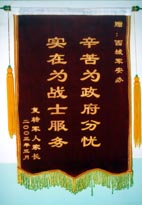 赠：西城军安办
辛苦为政府分忧
实在为战士服务
复转军人家长
二〇〇三年三月